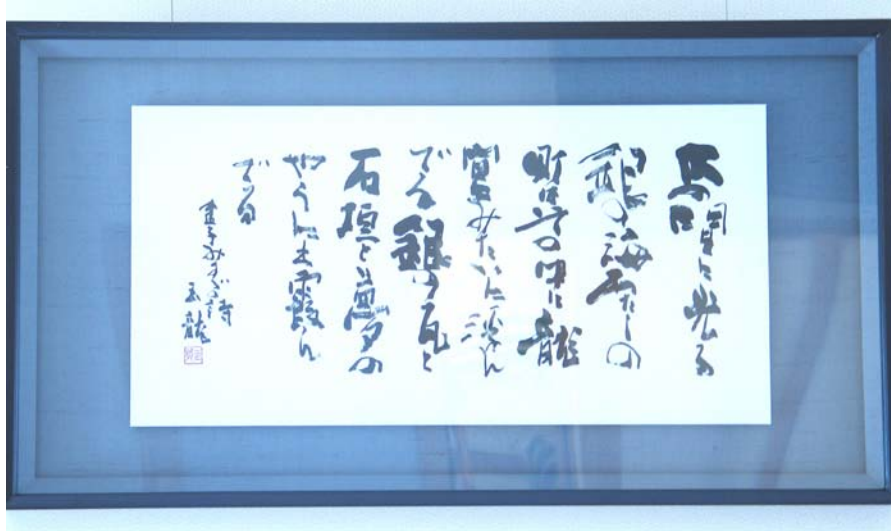 木の間に光る
銀の海わたしの
町はその中に龍
宮みたいに浮ん
でる銀の瓦と
石垣と夢の
やうにも霞ん
でる
金子みすゞ詩
玉龍